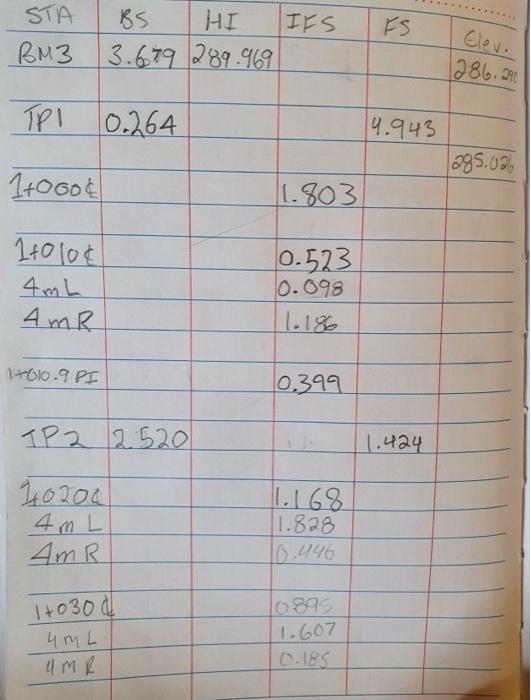 STA BS HI IFS FS Elev.
BM3 3.679 289.969 286.290
TP1 0.264 4.943
285.026
1+000 ℄ 1.803
1+010 ℄ 0.523
4mL 0.098
4mR 1.186
1+010.9 PI 0.399
TP2 2.520 1.424
1+020 ℄ 1.168
4mL 1.828
4mR 0.446
1+030 ℄ 0.895
4mL 1.607
4mR 0.185